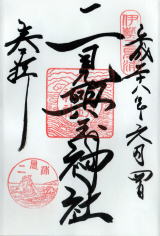 平成二十八年六月四日
伊勢
二見興玉神社
奉拝
二見浦